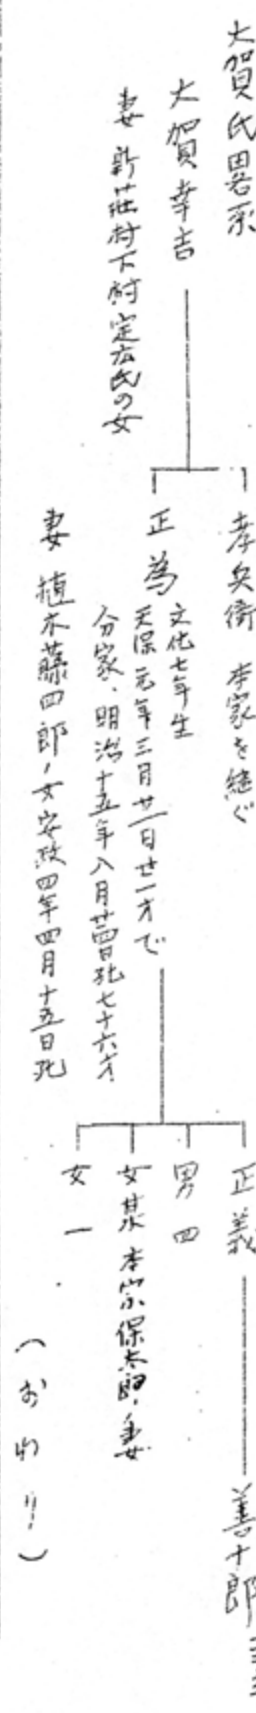 大賀氏畧系
大賀幸吉
妻 新莊村下村定広氏の女
孝兵衛 本家を継ぐ
正為 文化七年生
天保元年三月廿一日廿一才で
分家、明治十五年八月廿四日死七十六才
妻 植木藤四郎ノ女安政四年四月十五日死
正義
善十郎
男 四
女某 本宗保太郎ノ妻
女 一
(おわり)